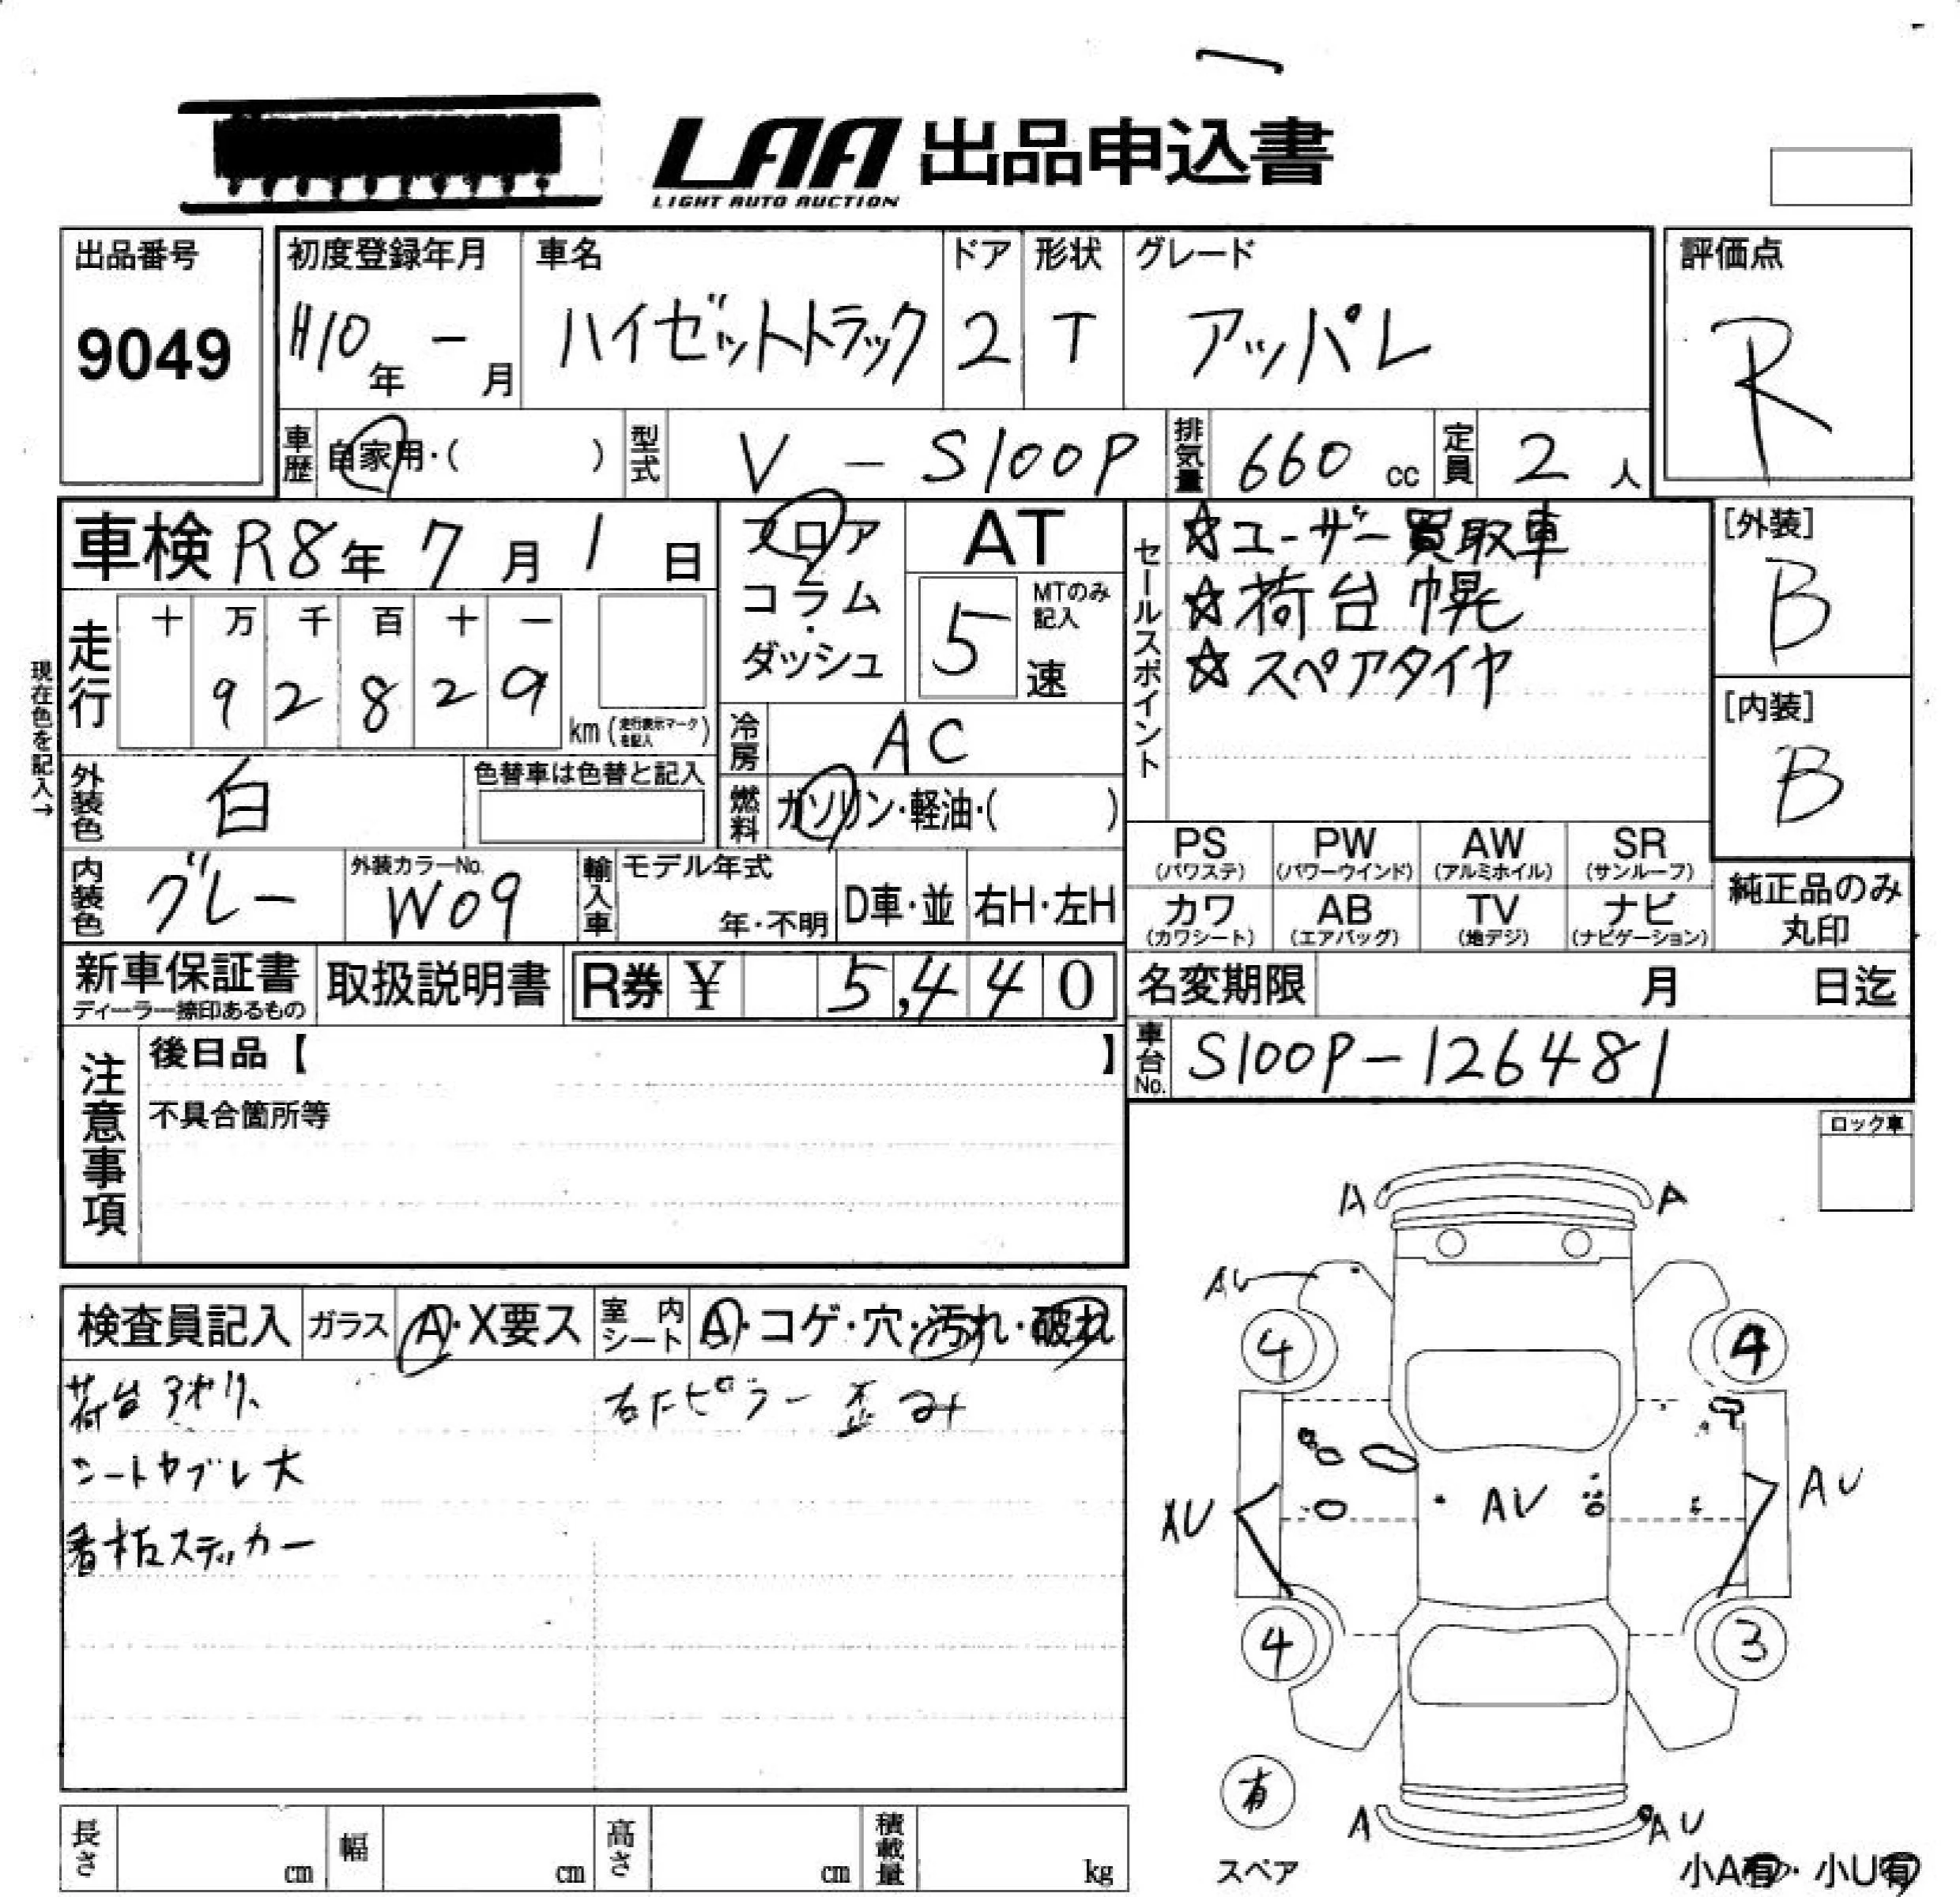 LAA 出品申込書
LIGHT AUTO AUCTION
出品番号
9049
初度登録年月 車名 ドア 形状 グレード
H10年 - 月 ハイゼットトラック 2 T アッパレ
評価点
R
車歴 自家用・( ) 型式 V - S100P 排気量 660 cc 定員 2 人
車検 R8年 7月 1日
フロア・コラム・ダッシュ
AT
5 速
MTのみ記入
セールスポイント
☆ユーザー買取車
☆荷台幌
☆スペアタイヤ
[外装]
B
[内装]
B
現在色を記入→
走行 十 万 千 百 十 一
9 2 8 2 9
km (走行表示マークを記入)
冷房 AC
外装色 白 色替車は色替と記入
燃料 ガソリン・軽油・( )
内装色 グレー 外装カラーNo. W09
輸入車 モデル年式 年・不明 D車・並 右H・左H
PS (パワステ) PW (パワーウインド) AW (アルミホイル) SR (サンルーフ)
カワ (カワシート) AB (エアバッグ) TV (地デジ) ナビ (ナビゲーション)
純正品のみ
丸印
新車保証書 取扱説明書 R券 ¥ 5,440
ディーラー捺印あるもの
名変期限 月 日迄
車台No. S100P-126481
注意事項
後日品【 】
不具合箇所等
ロック車
検査員記入 ガラス A・X要ス 室内シート A・コゲ・穴・汚れ・破れ
荷台アオリ、 右Fピラー歪み
シートヤブレ大
看板ステッカー
A A
AU
4 4
AU AU AU
4 3
有
A AU
スペア
小A有・小U有
長さ cm 幅 cm 高さ cm 積載量 kg